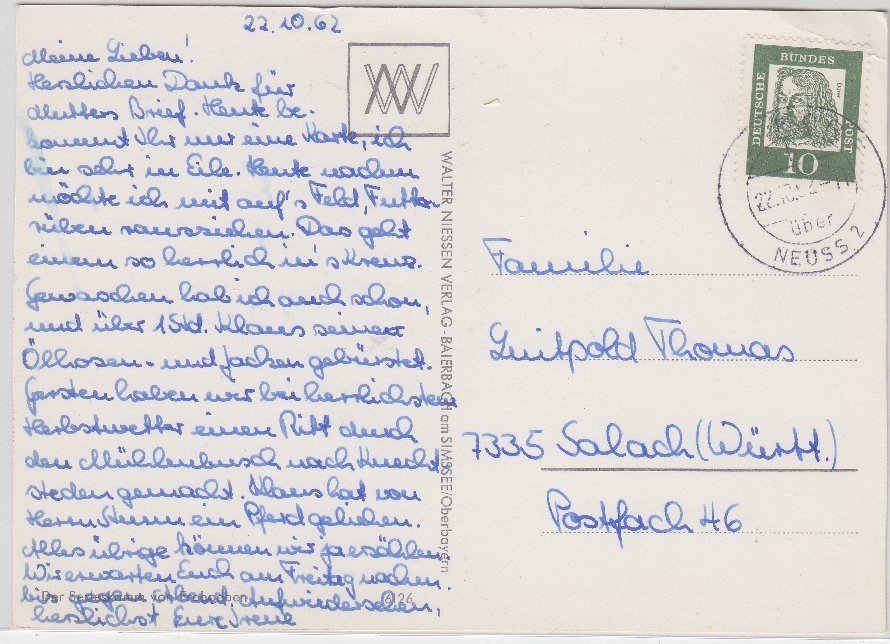 22.10.62
Meine Lieben!
Herzlichen Dank für
Mutters Brief. Heute be-
kommt Ihr nur eine Karte, ich
bin sehr in Eile. Heute nachm
möchte ich mit auf's Feld, Futter-
rüben rausziehen. Das geht
einem so herrlich in's Kreuz.
Gewaschen hab ich auch schon,
und über 1 Std. Klaus seinen
Ölhosen- und Jacken gebürstet.
Gestern haben wir bei herrlichstem
Herbstwetter einen Ritt durch
den Mühlenbusch nach Knecht
steden gemacht. Klaus hat von
Herrn ein Pferd geliehen.
Alles übrige können wir ja erzählen.
Wir erwarten Euch am Freitag nachm.
bis gegen Abend. Aufwiedersehen,
herzlichst Eure Irene
Der von
6126
WALTER NIESSEN VERLAG - BAIERBACH am SIMSSEE/Oberbayern
DEUTSCHE
BUNDES
POST
Dürer
10
22.10.62
über
NEUSS 2
Familie
Luitpold Thomas
7335 Salach (Württ.)
Postfach 46